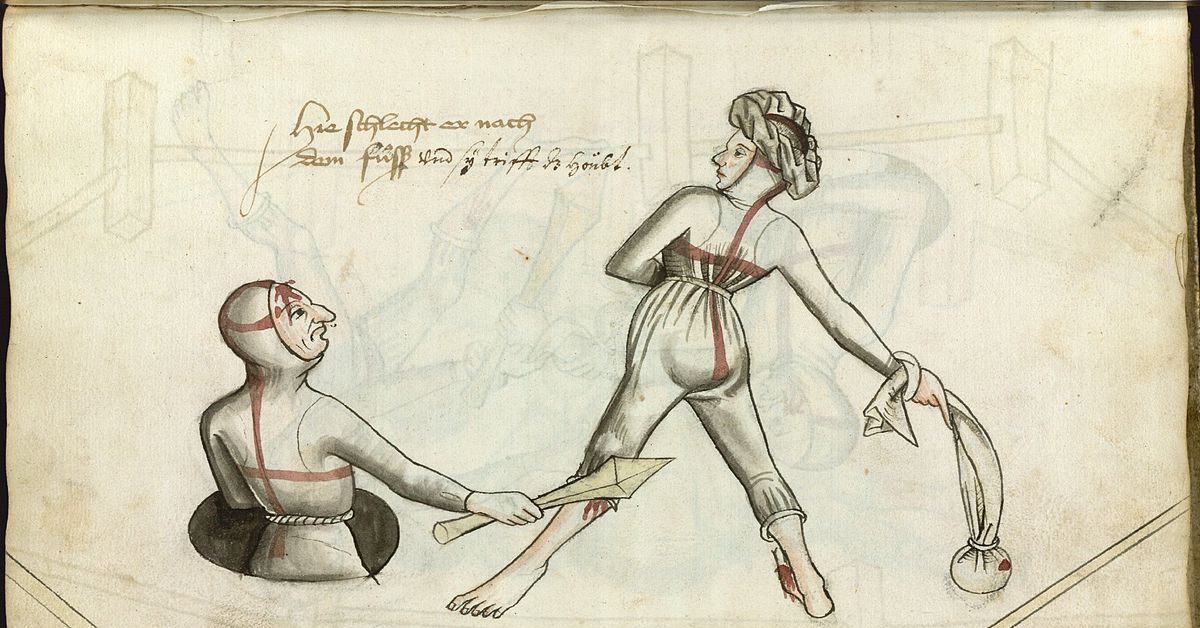 Hie schlecht er nach
dem fůsß Vnd sÿ trifft dz Hoŭbt.